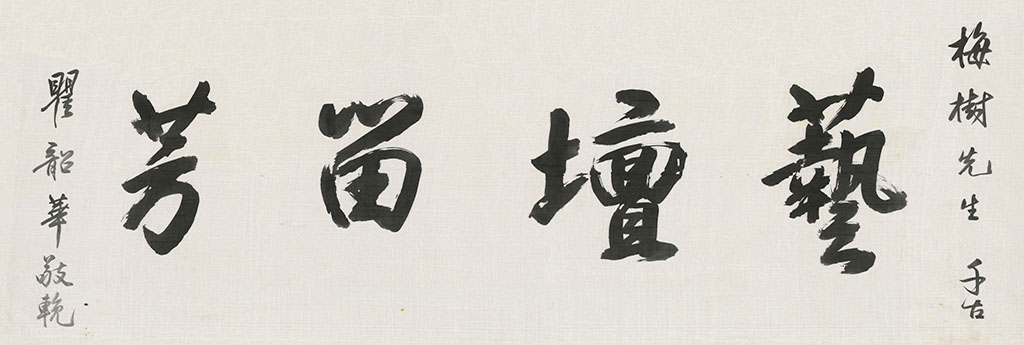 梅樹先生 千古
藝壇留芳
瞿韶華敬輓